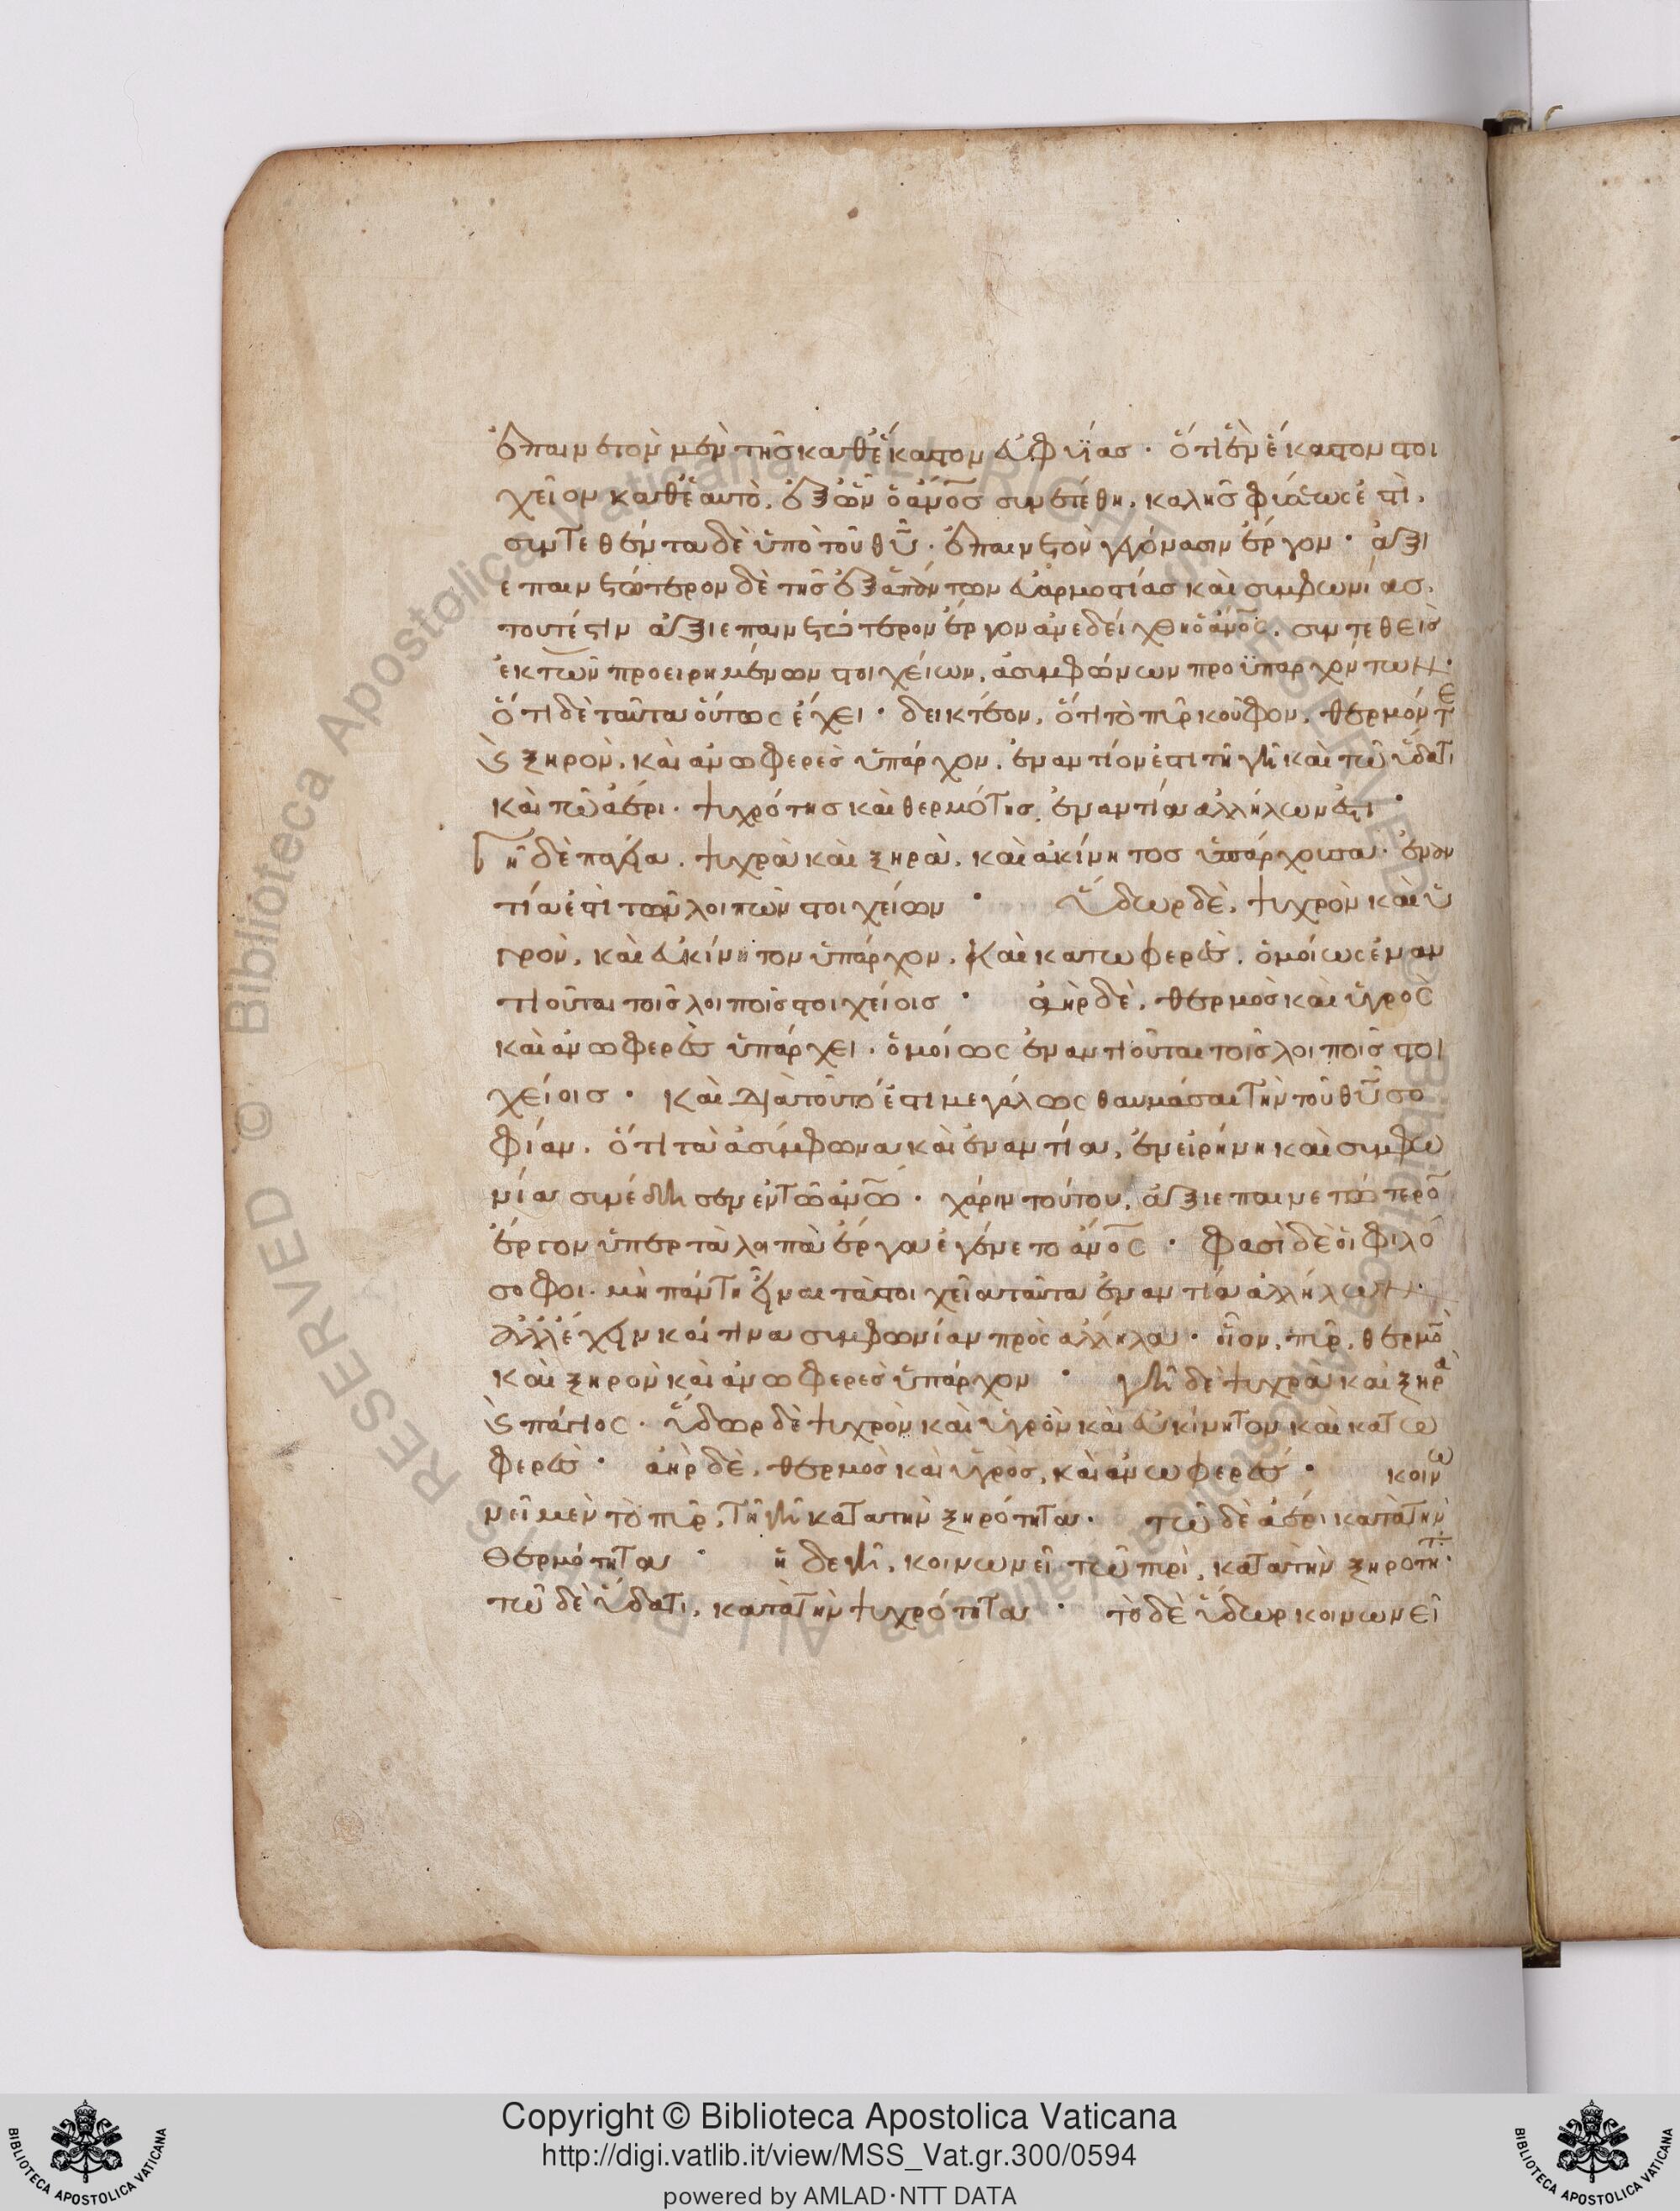 ἐπαινετὸν μὲν τῆς καθ ἕκαστον εὐφυΐας · ὅτι ἐν ἕκαστον στοι
χεῖον καθ ἑαυτὸ, ἐξ ὧν ὁ ἄνος συνετέθη, καλῆς φύσεως ἐστὶ,
συντεθέντα δὲ ὑπὸ τοῦ θῦ · ἐπαινετὸν γεγόνασιν ἔργον · ἀξι
επαινετώτερον δὲ τῆς ἐξ ἁπάντων εὐαρμοστίας καὶ συμφωνίας,
τουτέστιν ἀξιεπαινετώτερον ἔργον ἀνεδείχθη ὁ ἄνος, συντεθεὶς
ἐκ τῶν προειρημένων στοιχείων, ἀσυμφώνων προϋπαρχόντων ·
ὅτι δὲ ταῦτα οὕτως ἔχει · δεικτέον, ὅτι τὸ πῦρ κοῦφον, θερμόν τε
καὶ ξηρὸν, καὶ ἀνωφερὲς ὑπάρχον, ἐναντίον ἐστὶ τῇ γῇ καὶ τῷ ὕδατι
καὶ τῷ ἀέρι · ψυχρότης καὶ θερμότης, ἐναντία ἀλλήλων ἐστι ·
Γῆ δὲ παχεῖα, ψυχρὰ καὶ ξηρὰ, καὶ ἀκίνητος ὑπάρχουσα · ἐναν
τία ἐστὶ τῶν λοιπῶν στοιχείων · ὕδωρ δὲ, ψυχρὸν καὶ ὑ
γρὸν, καὶ εὐκίνητον ὑπάρχον, καὶ κατωφερὲς, ὁμοίως ἐναν
τιοῦται τοῖς λοιποῖς στοιχείοις · ἀὴρ δὲ, θερμὸς καὶ ὑγρὸς
καὶ ἀνωφερὲς ὑπάρχει · ὁμοίως ἐναντιοῦται τοῖς λοιποῖς στοι
χείοις · καὶ διὰ τοῦτο ἔστι μεγάλως θαυμάσαι τὴν τοῦ θῦ σο
φίαν, ὅτι τὰ ἀσύμφωνα καὶ ἐναντία, ἐν εἰρήνη καὶ συμφω
νία συνέδησεν ἐν τῶ ἀνω · χάριν τούτου, ἀξιεπαινετώτερον
ἔργον ὑπὲρ τὰ λοιπὰ ἔργα ἐγένετο ἄνος · φασὶ δὲ οἱ φιλό
σοφοι · μὴ πάντη εἶναι τὰ στοιχεῖα ταῦτα ἐναντία ἀλλήλων ·
ἀλλ ἔχειν καί τινα συμφωνίαν πρὸς ἄλληλα · οἷον, πῦρ, θερμὸν
καὶ ξηρὸν καὶ ἀνωφερὲς ὑπάρχον · γῆ δὲ ψυχρὰ καὶ ξηρὰ
καὶ · ὕδωρ δὲ ψυχρὸν καὶ ὑγρὸν καὶ εὐκίνητον καὶ κατω
φερὲς · ἀὴρ δὲ, θερμὸς καὶ ὑγρὸς, καὶ ἀνωφερὲς · κοινω
νεῖ μὲν τὸ πῦρ, τῆ γῆ κατα τὴν ξηρότητα · τῶ δὲ ἀέρι κατὰ τὴν
θερμότητα · ἡ δε γῆ, κοινωνεῖ τῶ πυρὶ, κατα τὴν ξηρότητ ·
τῶ δὲ ὕδατι, κατὰ τὴν ψυχρότητα · τὸ δὲ ὕδωρ κοινωνεῖ
Copyright © Biblioteca Apostolica Vaticana
http://digi.vatlib.it/view/MSS_Vat.gr.300/0594
powered by AMLAD·NTT DATA
BIBLIOTECA APOSTOLICA VATICANA
BIBLIOTECA APOSTOLICA VATICANA